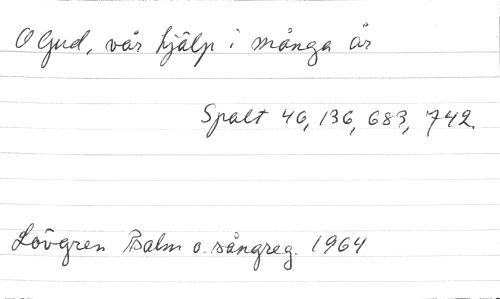 O Gud, vår hjälp i många år
Spalt 46, 136, 683, 742.
Lövgren Psalm o. sångreg. 1964